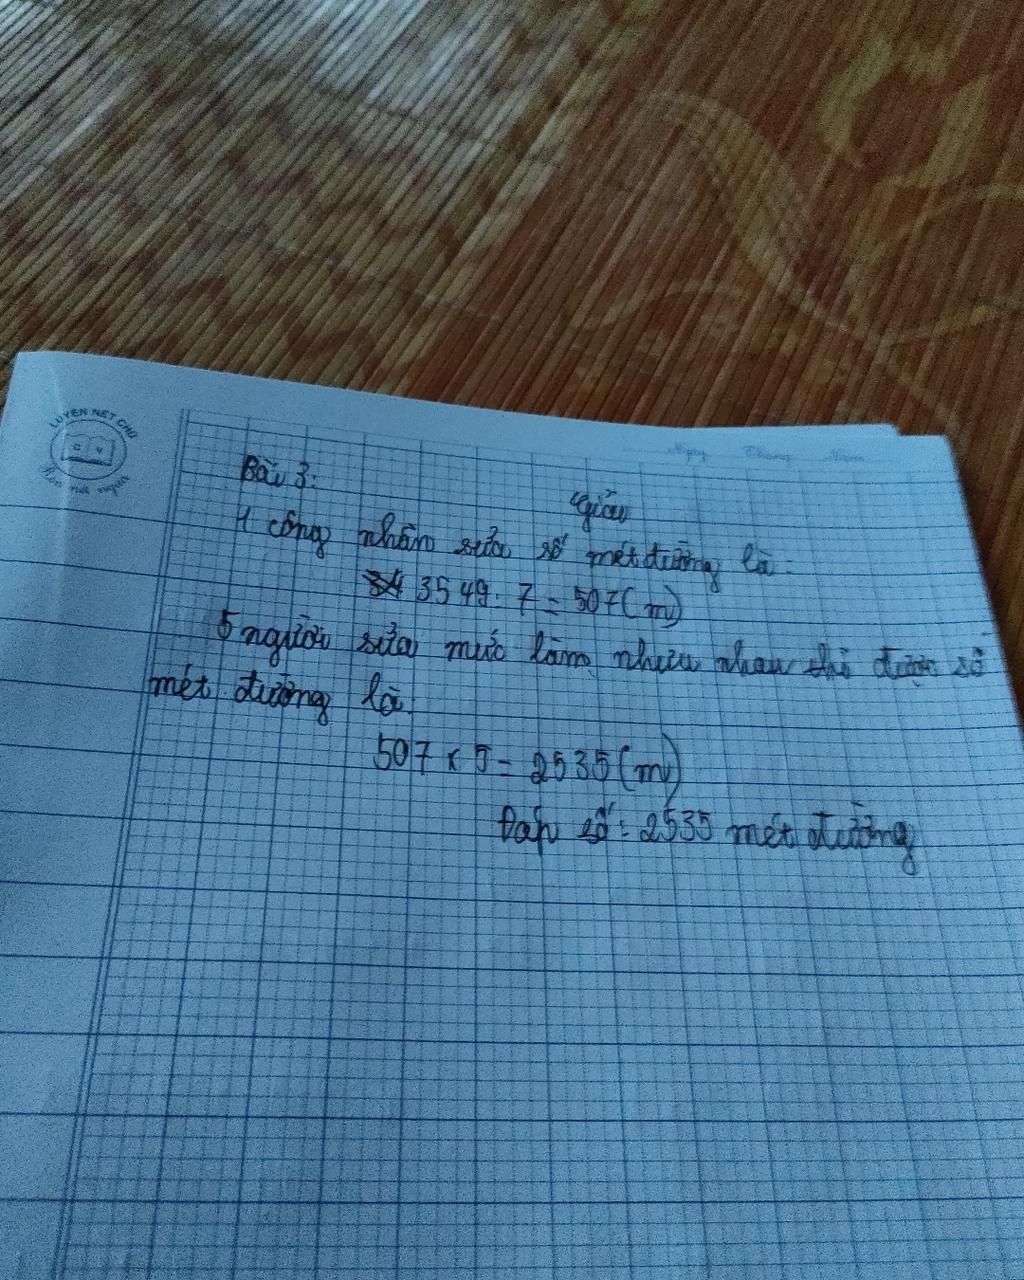 LUYỆN NÉT CHỮ
C V
Rèn nết người
Ngày Tháng Năm
Bài 3:
Giải
1 công nhân sửa số mét đường là:
3549 : 7 = 507 (m)
5 người sửa mức làm như nhau thì được số
mét đường là:
507 x 5 = 2535 (m)
Đáp số: 2535 mét đường